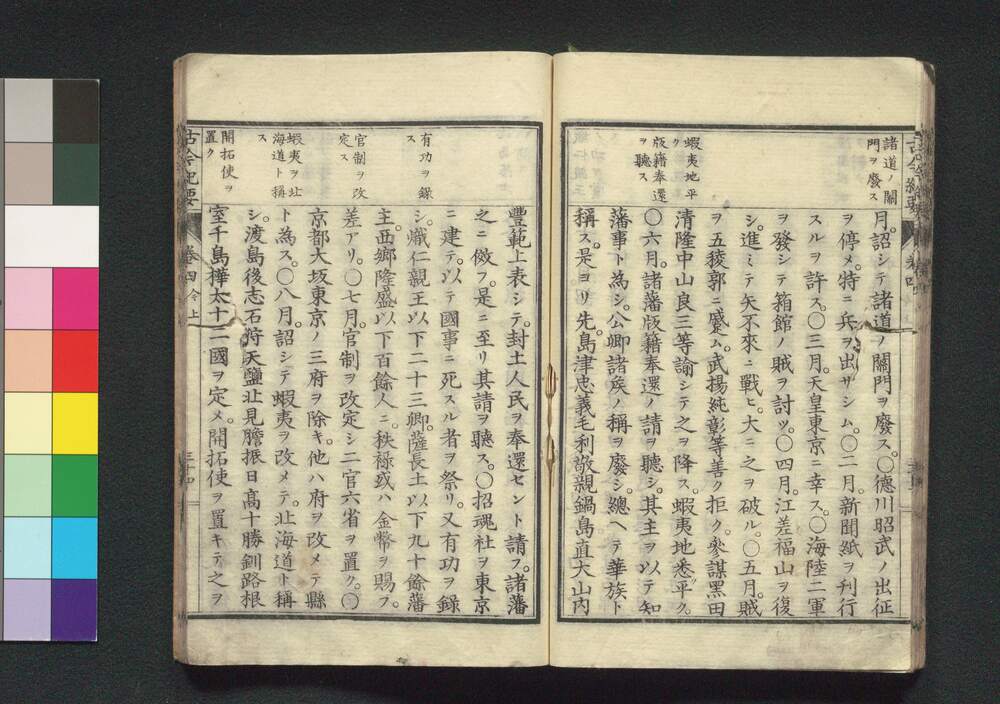 諸道ノ關
門ヲ廢ス
月。詔シテ諸道ノ關門ヲ廢ス。〇德川昭武ノ出征
ヲ停メ。特ニ兵ヲ出サシム。〇二月。新聞紙ヲ刊行
スルヲ許ス。〇三月。天皇東京ニ幸ス。〇海陸二軍
ヲ發シテ箱館ノ賊ヲ討ツ。〇四月。江差福山ヲ復
シ。進ミテ矢不來ニ戰ヒ。大ニ之ヲ破ル。〇五月。賊
ヲ五稜郭ニ蹙ム。武揚純彰等善ク拒ク。參謀黑田
蝦夷地平
ク
清隆中山良三等諭シテ之ヲ降ス。蝦夷地悉平ク。
版籍奉還
ヲ聽ス
〇六月。諸藩版籍奉還ノ請ヲ聽シ。其主ヲ以テ知
藩事ト為シ。公卿諸矦ノ稱ヲ廢シ。總ヘテ華族ト
稱ス。是ヨリ先。島津忠義毛利敬親鍋島直大山内
豐範上表シテ。封土人民ヲ奉還セント請フ。諸藩
之ニ傚フ。是ニ至リ其請ヲ聽ス。〇招魂社ヲ東京
ニ建テ。以テ國事ニ死スル者ヲ祭リ。又有功ヲ録
有功ヲ録
ス
シ。熾仁親王以下二十三卿。薩長土以下九十餘藩
主。西鄕隆盛以下百餘人ニ。秩祿或ハ金幣ヲ賜フ。
差アリ。〇七月。官制ヲ改定シ二官六省ヲ置ク。〇
官制ヲ改
定ス
京都大坂東京ノ三府ヲ除キ。他ハ府ヲ改メテ縣
ト為ス。〇八月。詔シテ蝦夷ヲ改メテ。北海道ト稱
蝦夷ヲ北
海道ト稱
ス
シ。渡島後志石狩天鹽北見膽振日髙十勝釧路根
開拓使ヲ
置ク
室千島樺太十二國ヲ定メ。開拓使ヲ置キテ之ヲ
古今紀要
卷四
今上
三十四